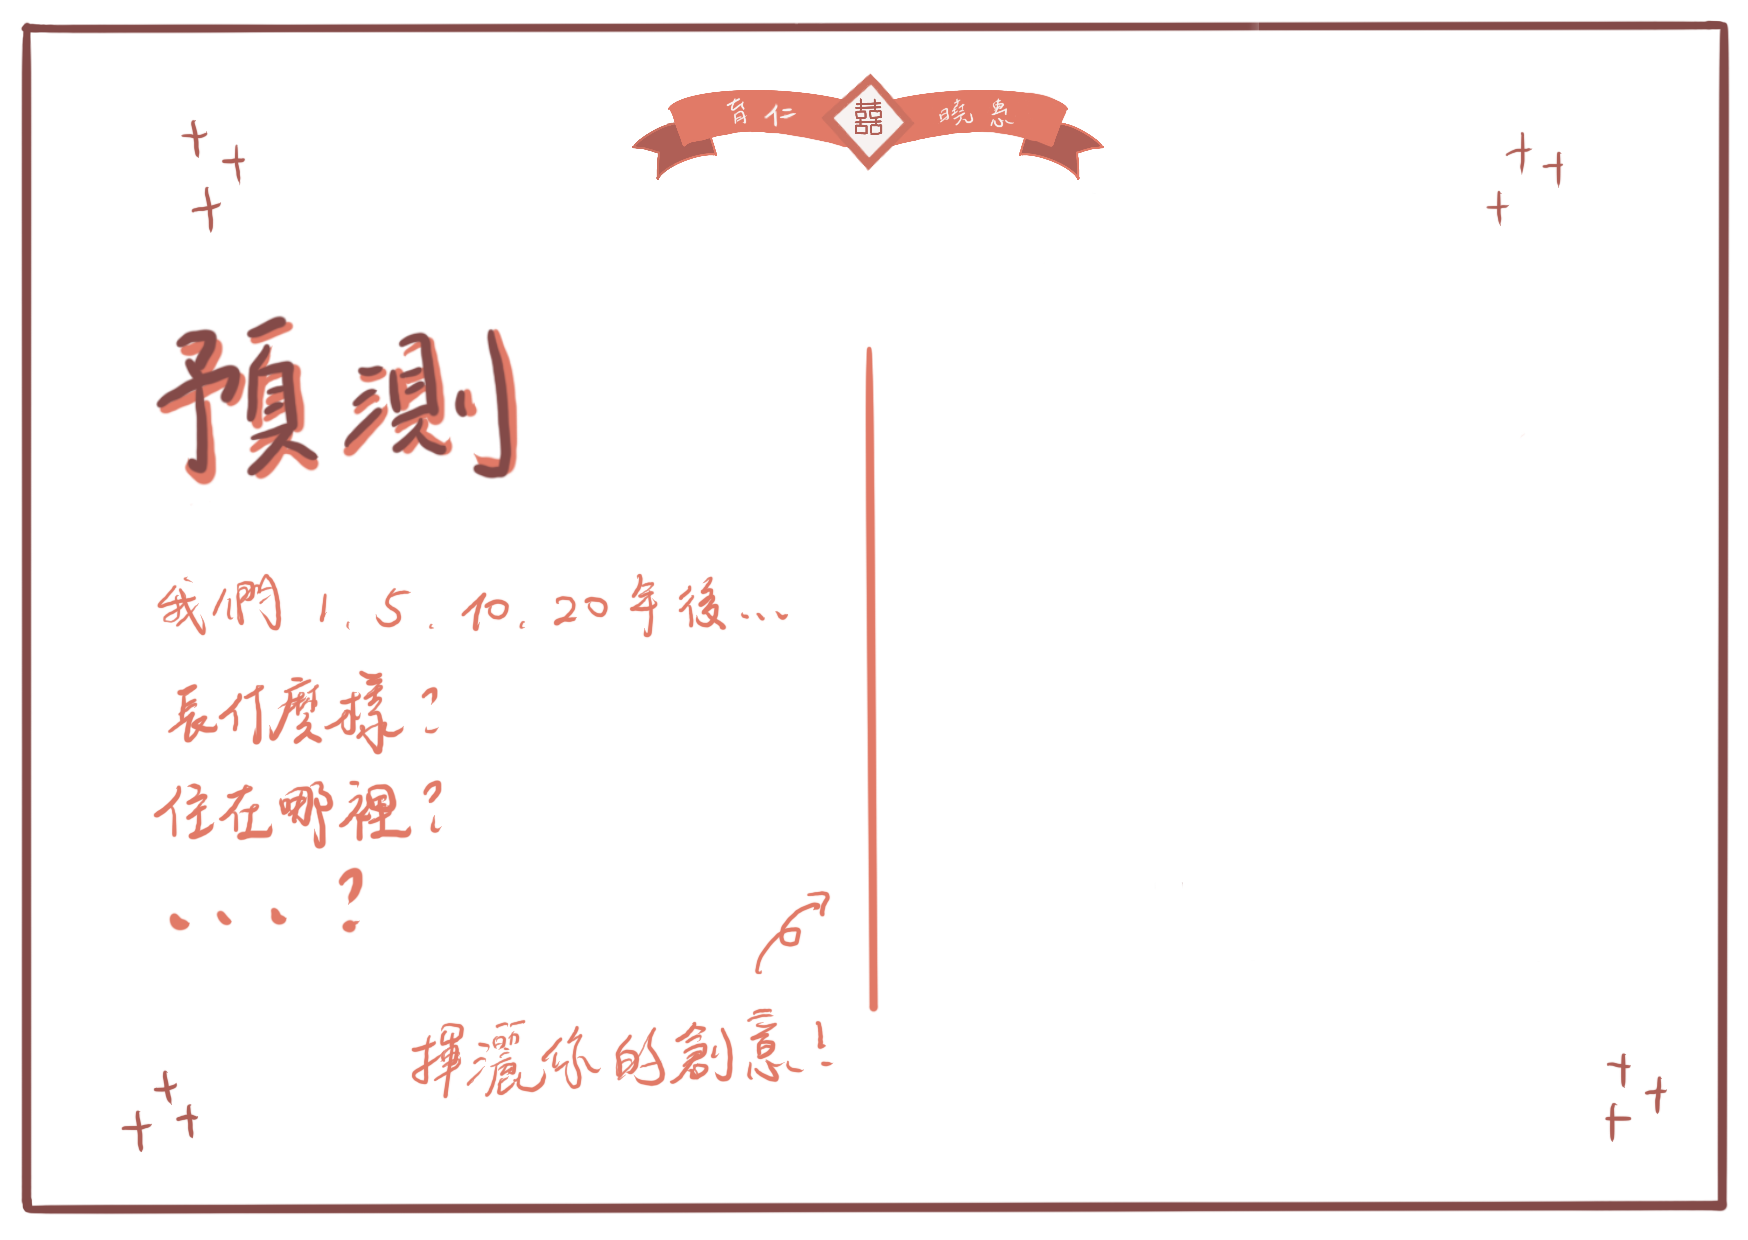 育仁 囍 曉惠
預測
我們 1、5、10、20年後...
長什麼樣?
住在哪裡?
...?
揮灑你的創意!